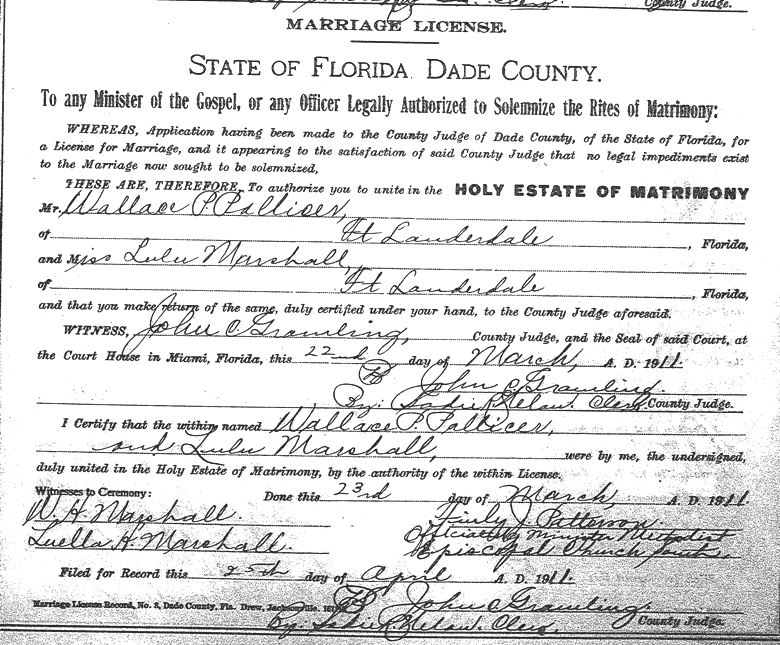 County Judge.
MARRIAGE LICENSE.
STATE OF FLORIDA DADE COUNTY.
To any Minister of the Gospel, or any Officer Legally Authorized to Solemnize the Rites of Matrimony:
WHEREAS, Application having been made to the County Judge of Dade County, of the State of Florida, for
a License for Marriage, and it appearing to the satisfaction of said County Judge that no legal impediments exist
to the Marriage now sought to be solemnized,
THESE ARE, THEREFORE, To authorize you to unite in the HOLY ESTATE OF MATRIMONY
Mr. Wallace P. Palliser,
of Ft Lauderdale, Florida,
and Miss Lulu Marshall,
of Ft Lauderdale, Florida,
and that you make return of the same, duly certified under your hand, to the County Judge aforesaid.
WITNESS, John C. Gramling, County Judge, and the Seal of said Court, at
the Court House in Miami, Florida, this 22nd day of March, A. D. 1911.
John C. Gramling.
By: Clerk. County Judge.
I Certify that the within named Wallace P. Palliser,
and Lulu Marshall, were by me, the undersigned,
duly united in the Holy Estate of Matrimony, by the authority of the within License.
Witnesses to Ceremony: Done this 23rd day of March, A. D. 1911.
W. H. Marshall. J. Patterson.
Luella H. Marshall. Officiating Minister Methodist
Episcopal Church South
Filed for Record this 25th day of April A. D. 1911.
Marriage License Record, No. 3, Dade County, Fla. Drew, Jacksonville. John C. Gramling.
By: Clerk. County Judge.